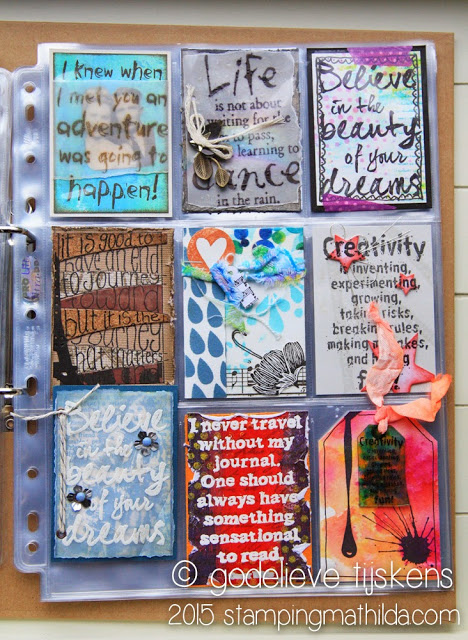 I knew when
I met you an
adventure
was going to
happen!
Life
is not about
waiting for the
to pass,
learning to
dance
in the rain.
Believe
in the
beauty
of your
dreams
it is good to
have an end
to journey
toward
but it is the
journey
that matters
Creativity
is inventing,
experimenting,
growing,
taking risks,
breaking rules,
making mistakes,
and having
fun!
Believe
in the
beauty
of your
dreams
I never travel
without my
journal.
One should
always have
something
sensational
to read
Creativity
fun!
© godelieve tijskens
2015 stampingmathilda.com